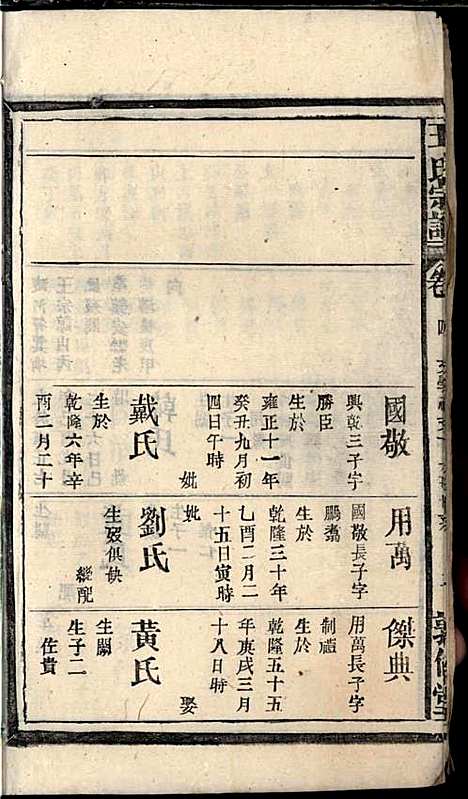 王氏宗譜 卷
國敬
興乾三子字
勝臣
生於
雍正十一年
癸丑九月初
四日午時
妣
戴氏
生於
乾隆六年辛
酉二月二十
用萬
國敬長子字
鵬翥
生於
乾隆三十年
乙酉二月二
十五日寅時
妣
劉氏
生歿俱缺
繼配
傑典
用萬長子字
制禮
生於
乾隆五十五
年庚戌三月
十八日時
娶
黃氏
生闕
生子二
佐貴